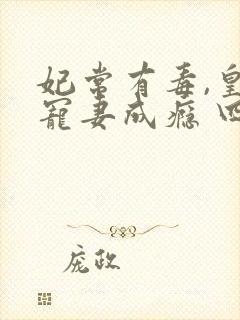 妃常有毒,皇
宠妻成瘾
庞政